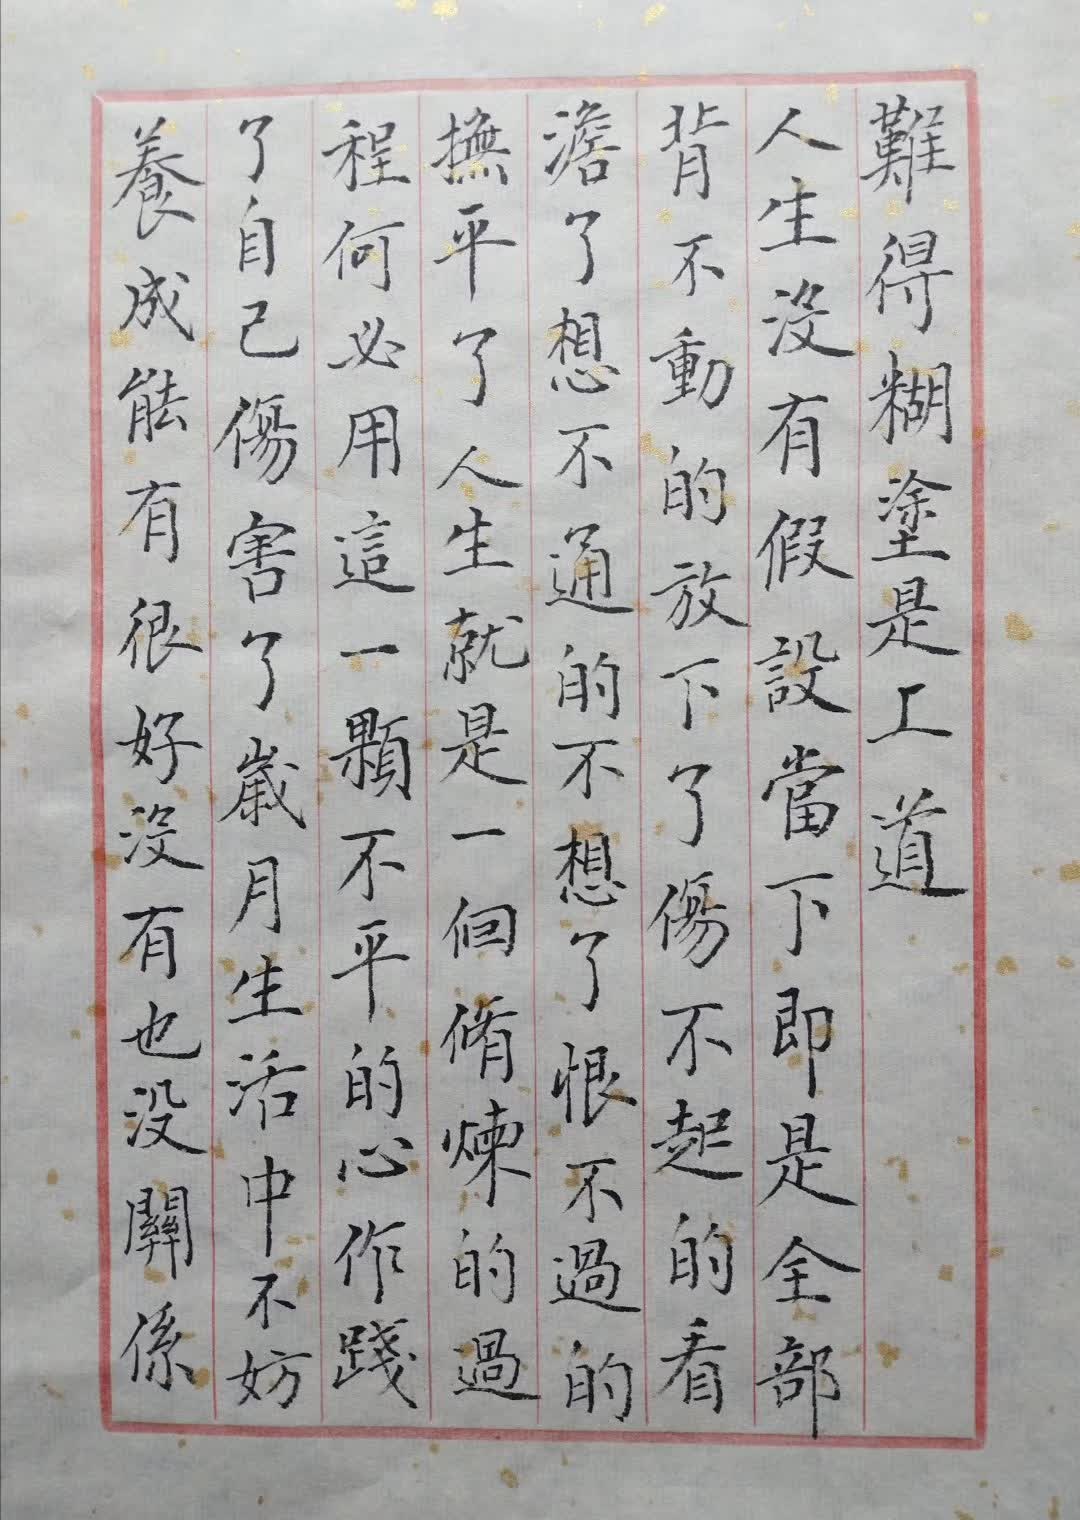 難得糊塗是工道
人生沒有假設當下即是全部
背不動的放下了傷不起的看
澹了想不通的不想了恨不過的
撫平了人生就是一個脩煉的過
程何必用這一顆不平的心作踐
了自己傷害了歲月生活中不妨
養成能有很好沒有也没關係